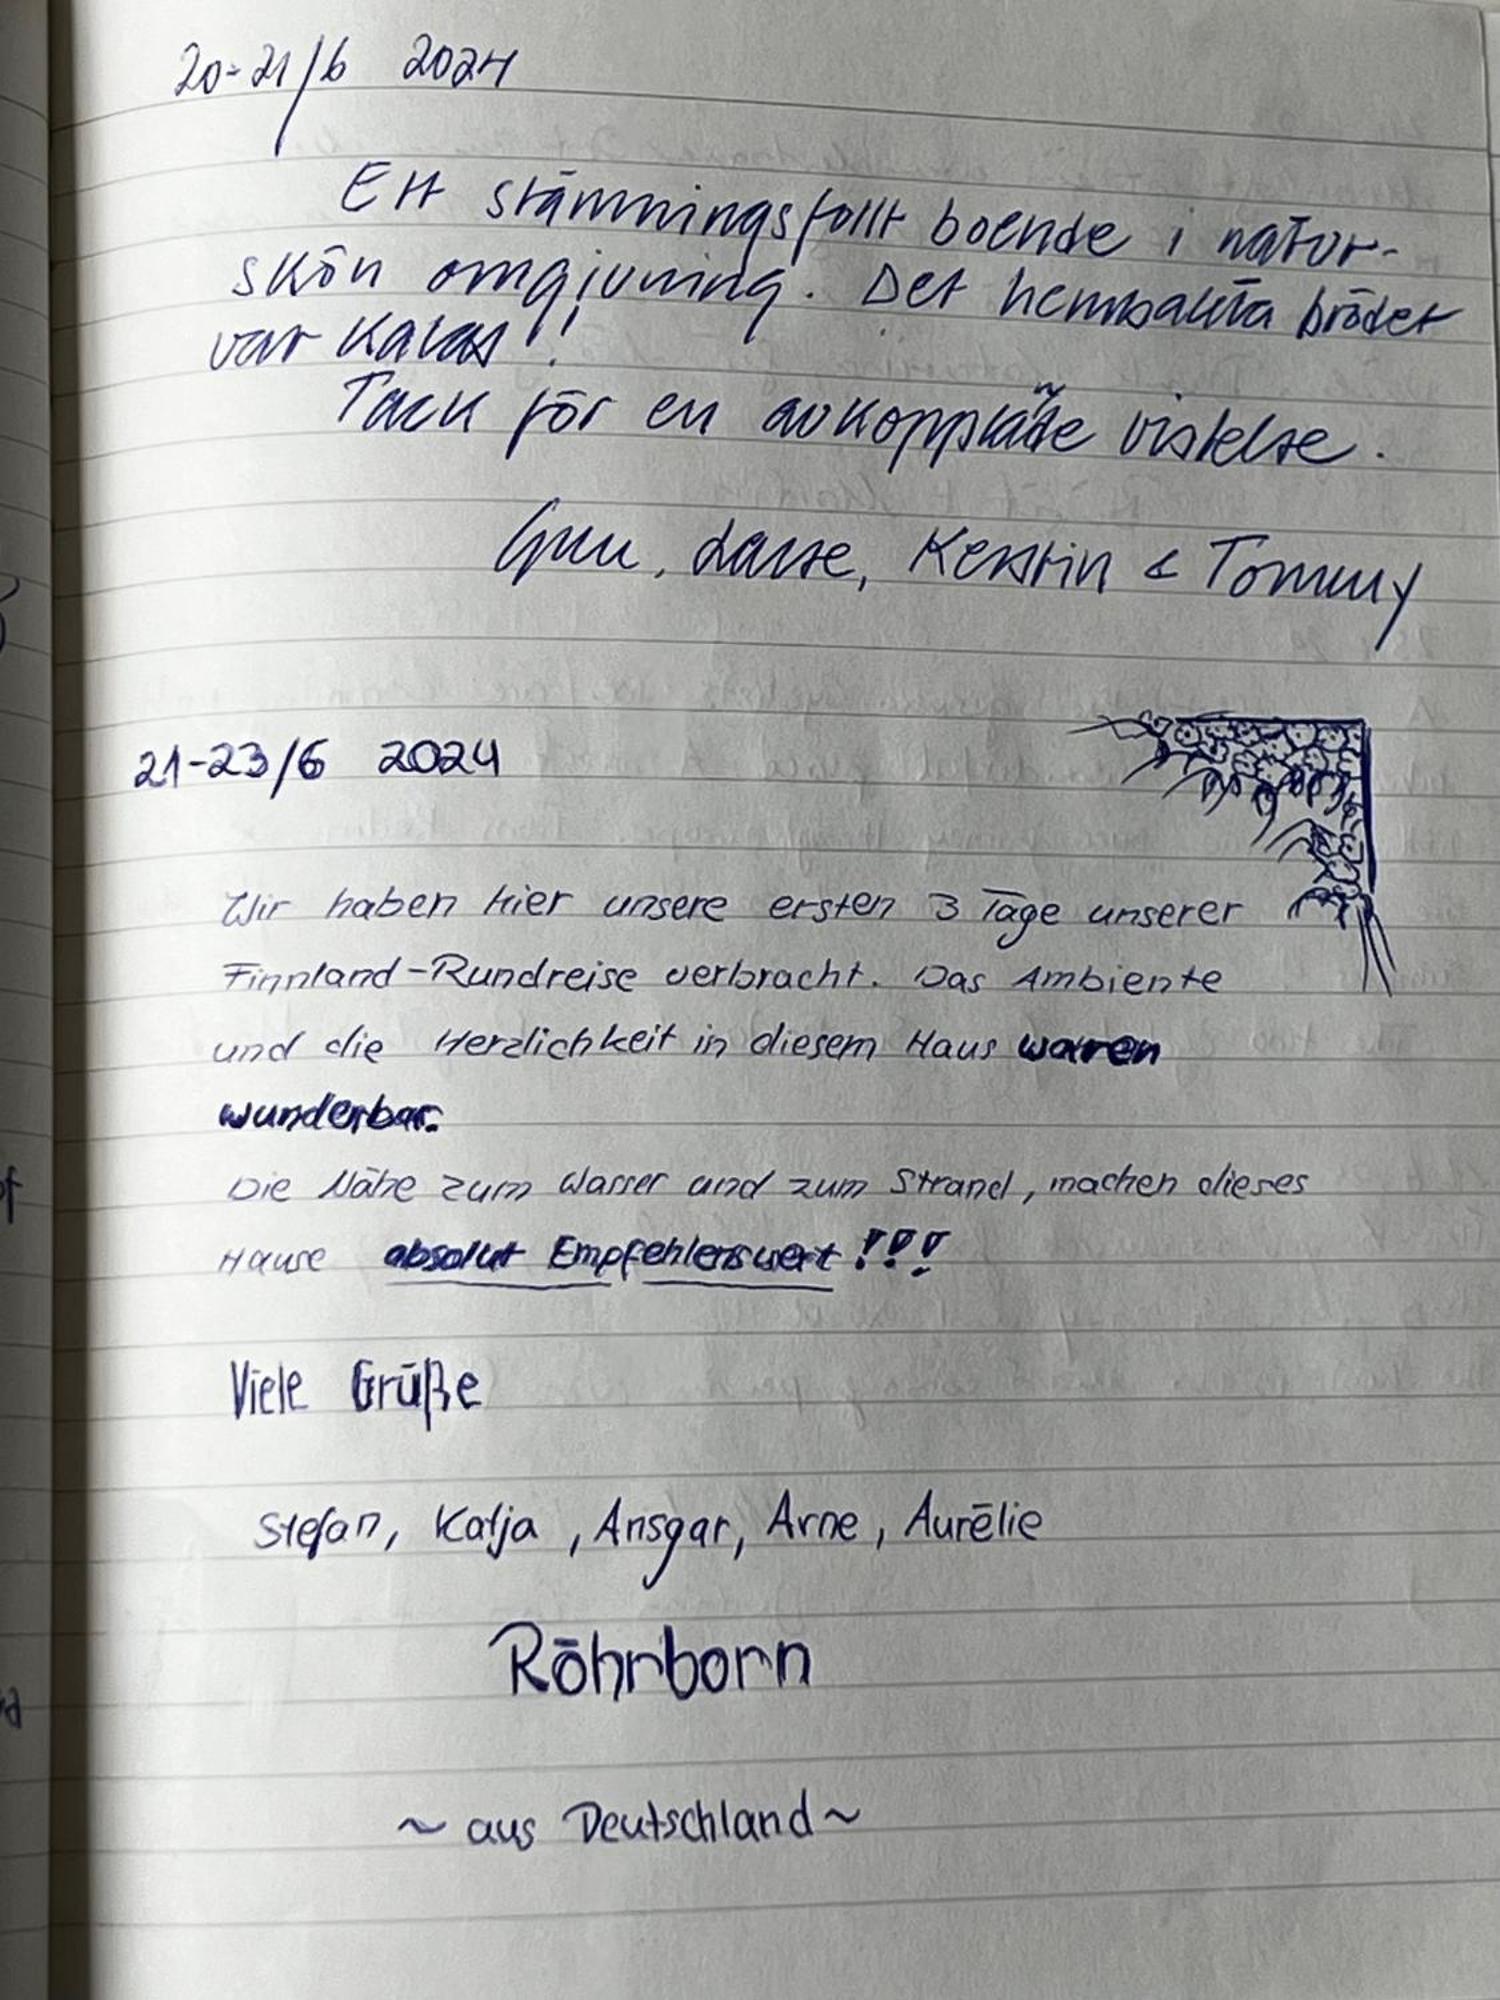 20-21/6 2024
Ett stämningsfullt boende i natur-
skön omgivning. Det hembakta brödet
var kalas!!
Tack för en avkopplande vistelse.
Gun, Lasse, Kerstin & Tommy
21-23/6 2024
Wir haben hier unsere ersten 3 Tage unserer
Finnland-Rundreise verbracht. Das Ambiente
und die Herzlichkeit in diesem Haus waren
wunderbar.
Die Nähe zum Wasser und zum Strand, machen dieses
Hause absolut Empfehlenswert!!!
Viele Grüße
Stefan, Katja, Ansgar, Arne, Aurélie
Röhrborn
~ aus Deutschland ~